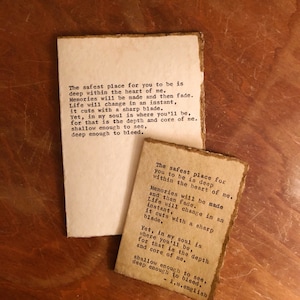 The safest place for you to be is
deep within the heart of me.
Memories will be made and then fade.
Life will change in an instant,
it cuts with a sharp blade.
Yet, in my soul is where you'll be,
for that is the depth and core of me,
shallow enough to see,
deep enough to bleed.
The safest place for
you to be is deep
within the heart of me.
Memories will be made
and then fade.
Life will change in an
instant,
it cuts with a sharp
blade.
Yet, in my soul is
where you'll be,
for that is the depth
and core of me,
shallow enough to see,
deep enough to bleed.
- l.a.english